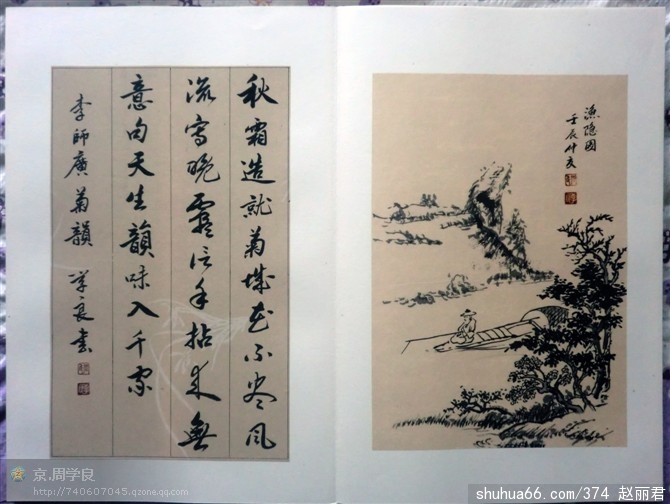 秋霜造就菊城花不尽风
流写晚霞信手拈来无
意句天生韵味入千家
李師廣菊韻 学良书
漁隐图
壬辰仲夏
京.周学良
http://740607045.qzone.qq.com
shuhua66.com/374 赵丽君